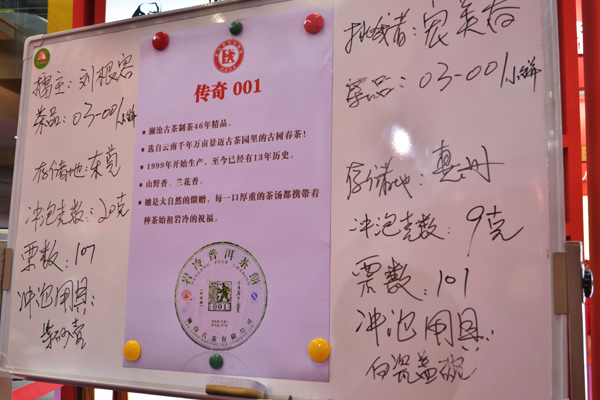 擂主：刘根容
茶品：03-001小饼
存储地：东莞
冲泡克数：20克
票数：107
冲泡用具：
紫砂壶
传奇 001
● 澜沧古茶制茶46年精品。
● 选自云南千年万亩景迈古茶园里的古树春茶！
● 1999年开始生产，至今已经有13年历史。
● 山野香、兰花香。
● 她是大自然的馈赠，每一口厚重的茶汤都携带着
种茶始祖岩冷的祝福。
岩冷普洱茶饼
001
挑战者：
茶品：03-001小饼
存储地：惠州
冲泡克数：9克
票数：101
冲泡用具：
白瓷盖碗